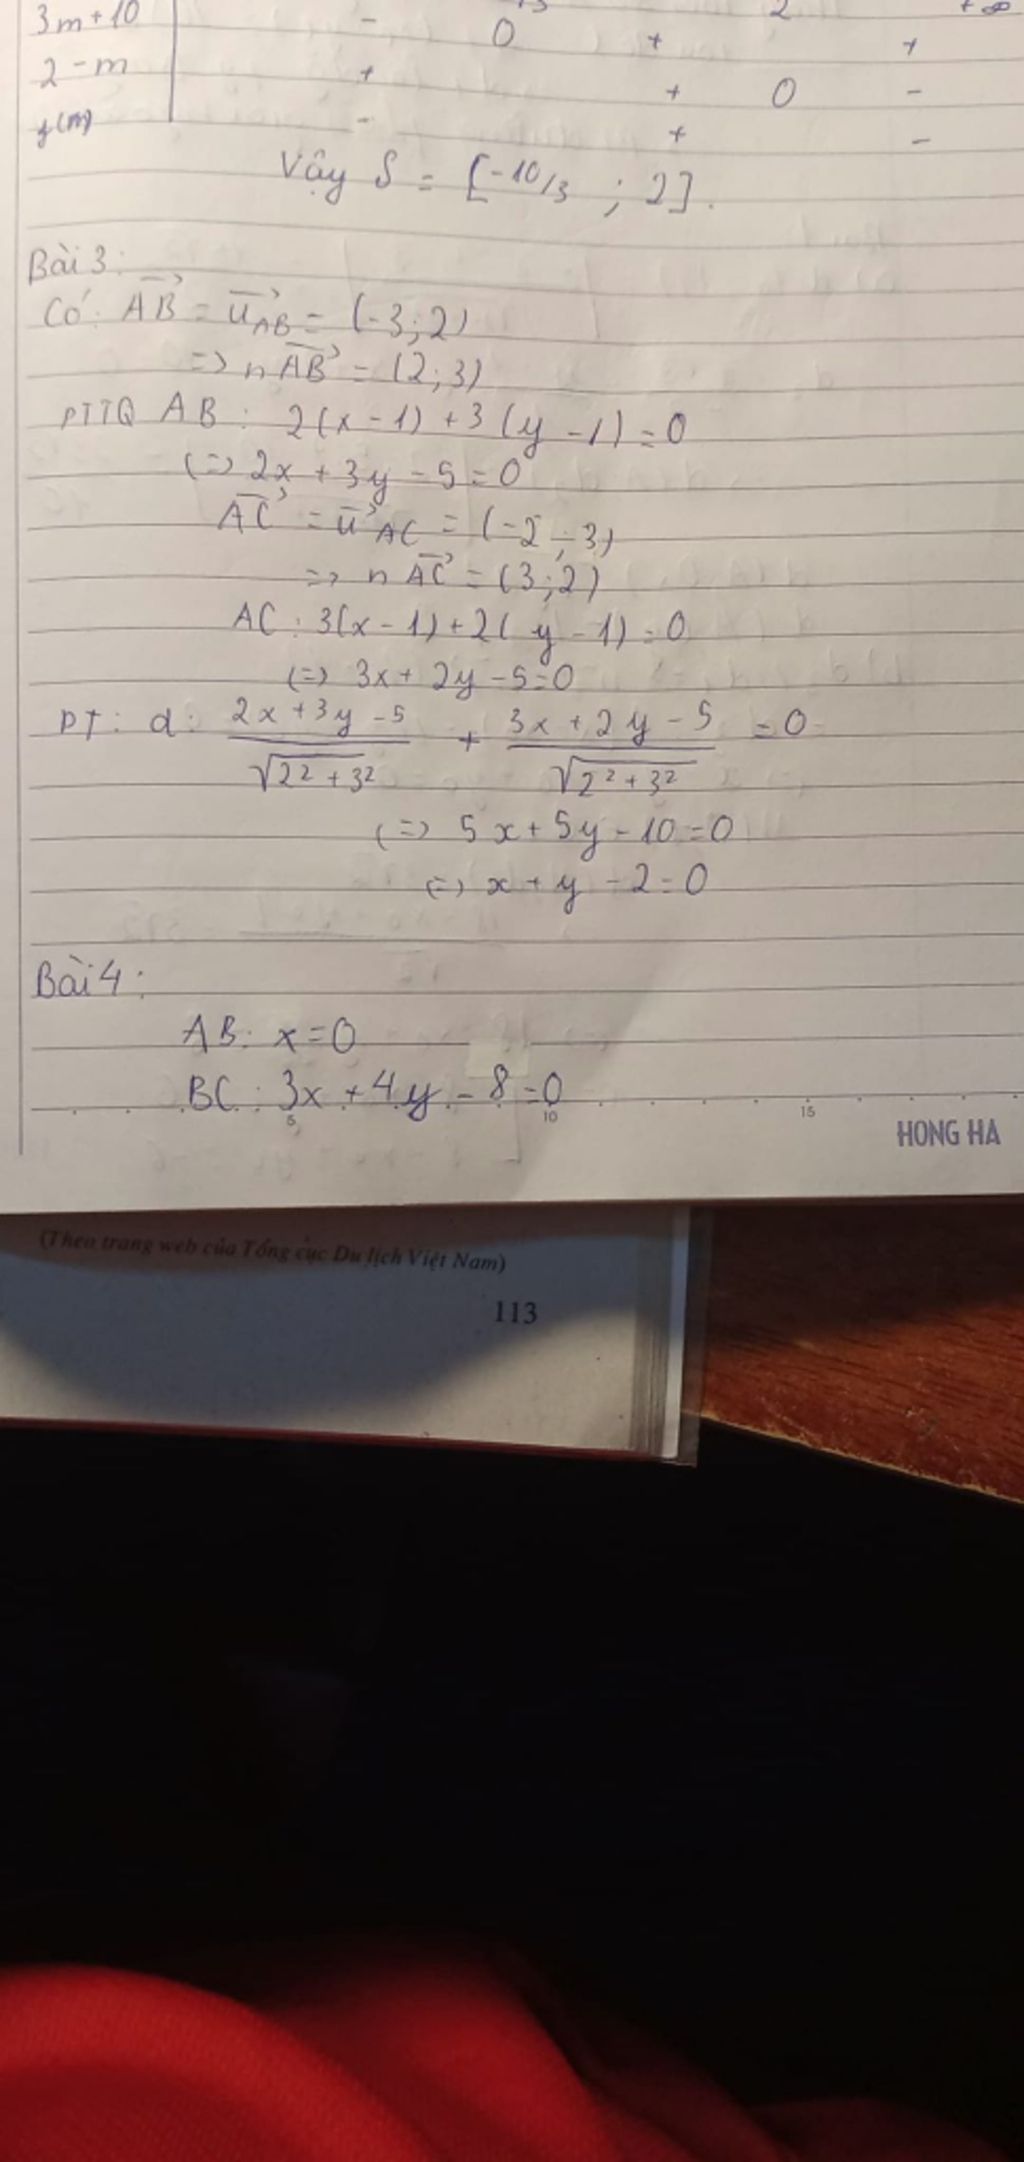 3m+10 - 0 + 2 + +∞
2-m + + 0 -
f(m) - + -
Vậy S = [-10/3 ; 2].
Bài 3:
Có: AB⃗ = u⃗AB = (-3;2)
=> nAB⃗ = (2;3)
PTTQ AB: 2(x-1)+3(y-1)=0
(=) 2x+3y-5=0
AC⃗ = u⃗AC = (-2;-3)
=> nAC⃗ = (3;2)
AC: 3(x-1)+2(y-1)=0
(=) 3x+2y-5=0
PT: d: (2x+3y-5)/√(2²+3²) + (3x+2y-5)/√(2²+3²) = 0
(=) 5x+5y-10=0
(=) x+y-2=0
Bài 4:
AB: x=0
BC: 3x+4y-8=0
5 10 15
HONG HA
(Theo trang web của Tổng cục Du lịch Việt Nam)
113